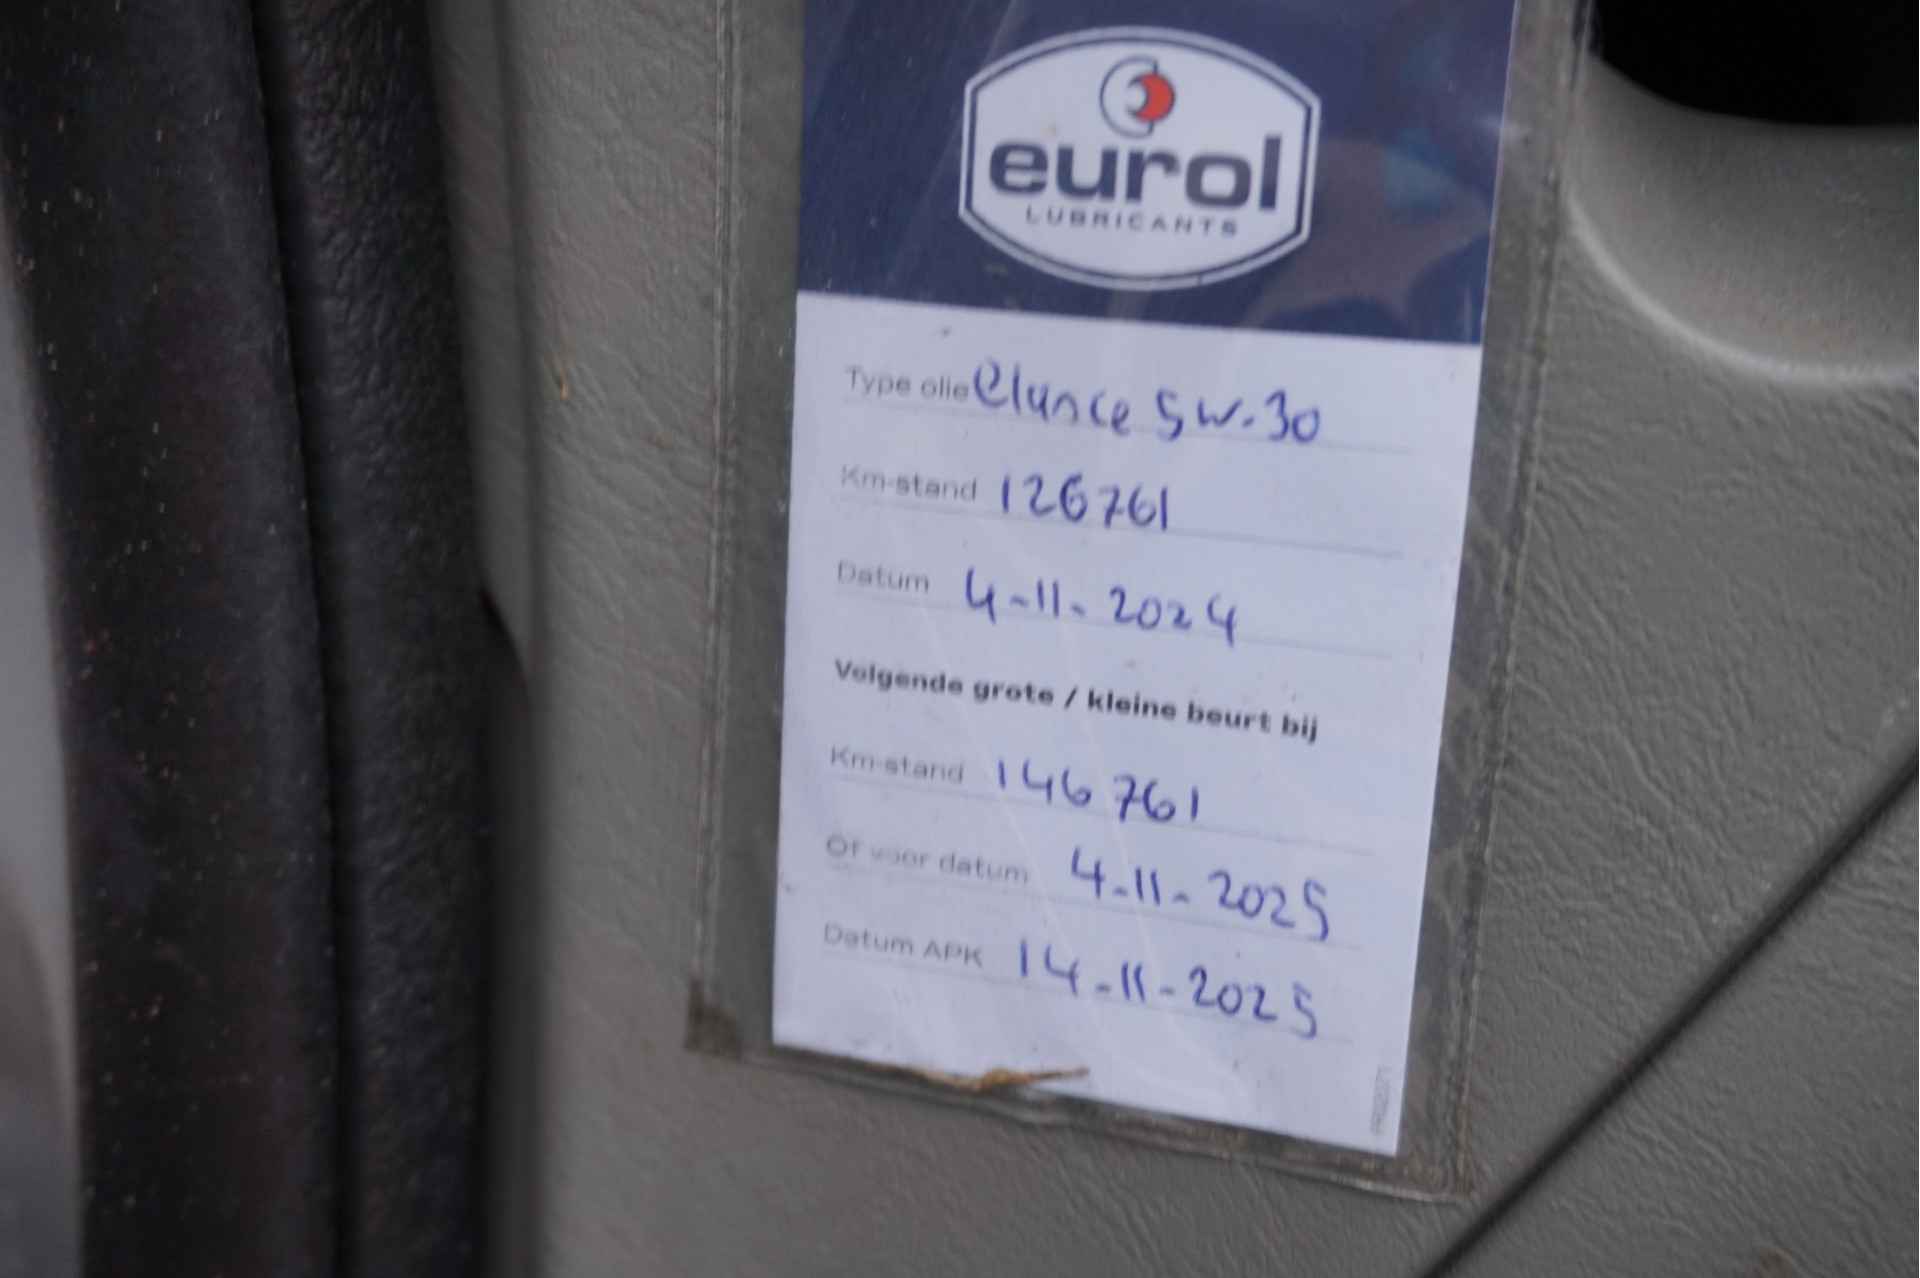 eurol
LUBRICANTS
Type olie Elance 5w-30
Km-stand 126761
Datum 4-11-2024
Volgende grote / kleine beurt bij
Km-stand 146761
Of voor datum 4-11-2025
Datum APK 14-11-2025